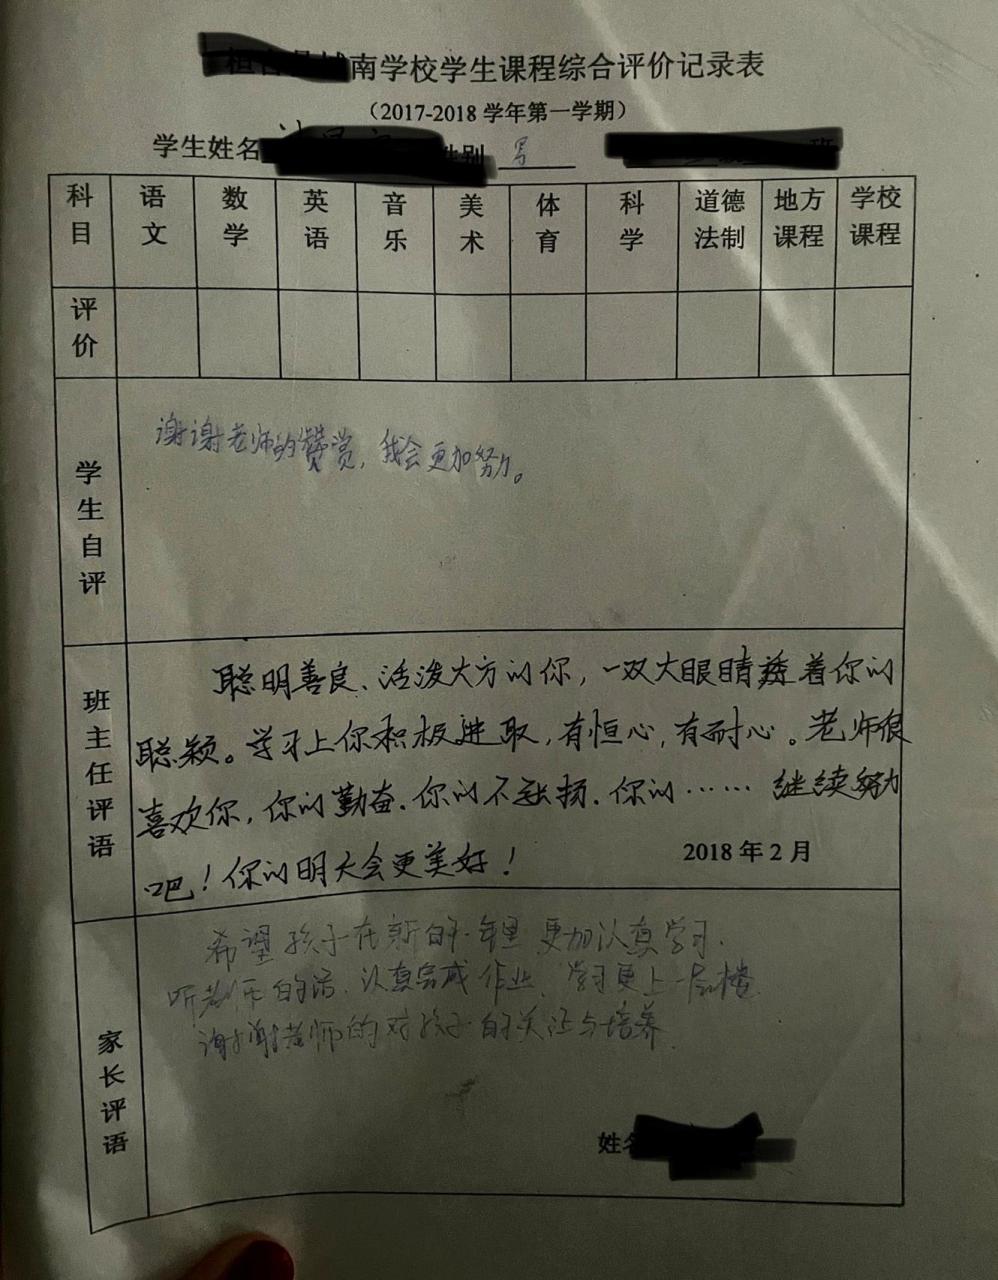 南学校学生课程综合评价记录表
（2017-2018 学年第一学期）
学生姓名 性别 男 班
科目 语文 数学 英语 音乐 美术 体育 科学 道德法制 地方课程 学校课程
评价
学生自评
谢谢老师的赞赏，我会更加努力。
班主任评语
聪明善良、活泼大方的你，一双大眼睛 着你的
聪颖。学习上你积极进取，有恒心，有耐心。老师很
喜欢你，你的勤奋.你的不张扬.你的…… 继续努力
吧！你的明天会更美好！
2018 年 2 月
家长评语
希望孩子在新的一年里 更加认真学习.
听老师的话.认真完成作业、学习更上一层楼.
谢谢老师的对孩子的关还与培养.
姓名